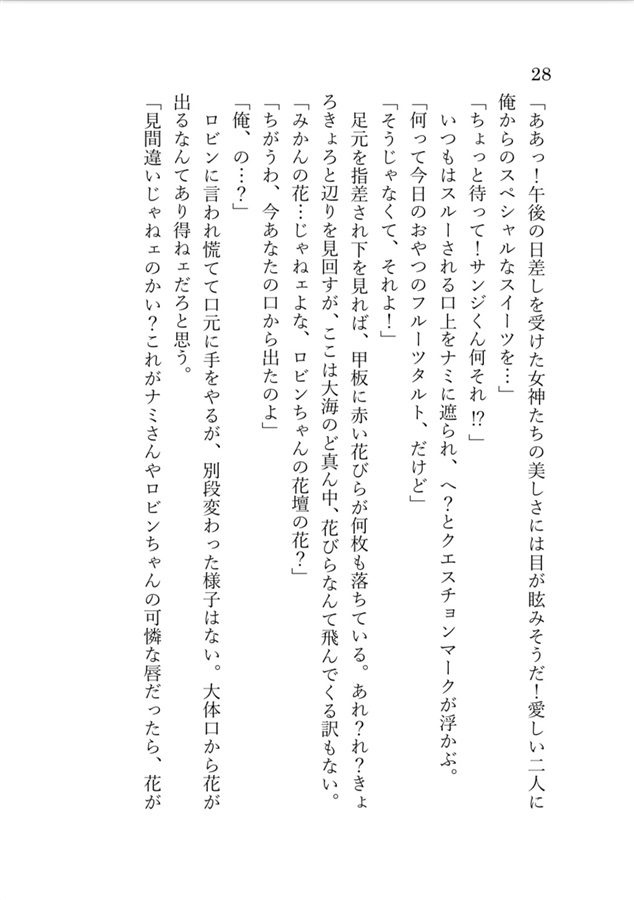 28
「ああっ！午後の日差しを受けた女神たちの美しさには目が眩みそうだ！愛しい二人に
俺からのスペシャルなスイーツを…」
「ちょっと待って！サンジくん何それ⁉」
いつもはスルーされる口上をナミに遮られ、へ？とクエスチョンマークが浮かぶ。
「何って今日のおやつのフルーツタルト、だけど」
「そうじゃなくて、それよ！」
足元を指差され下を見れば、甲板に赤い花びらが何枚も落ちている。あれ？れ？きょ
ろきょろと辺りを見回すが、ここは大海のど真ん中、花びらなんて飛んでくる訳もない。
「みかんの花…じゃねェよな、ロビンちゃんの花壇の花？」
「ちがうわ、今あなたの口から出たのよ」
「俺、の…？」
ロビンに言われ慌てて口元に手をやるが、別段変わった様子はない。大体口から花が
出るなんてあり得ねェだろと思う。
「見間違いじゃねェのかい？これがナミさんやロビンちゃんの可憐な唇だったら、花が